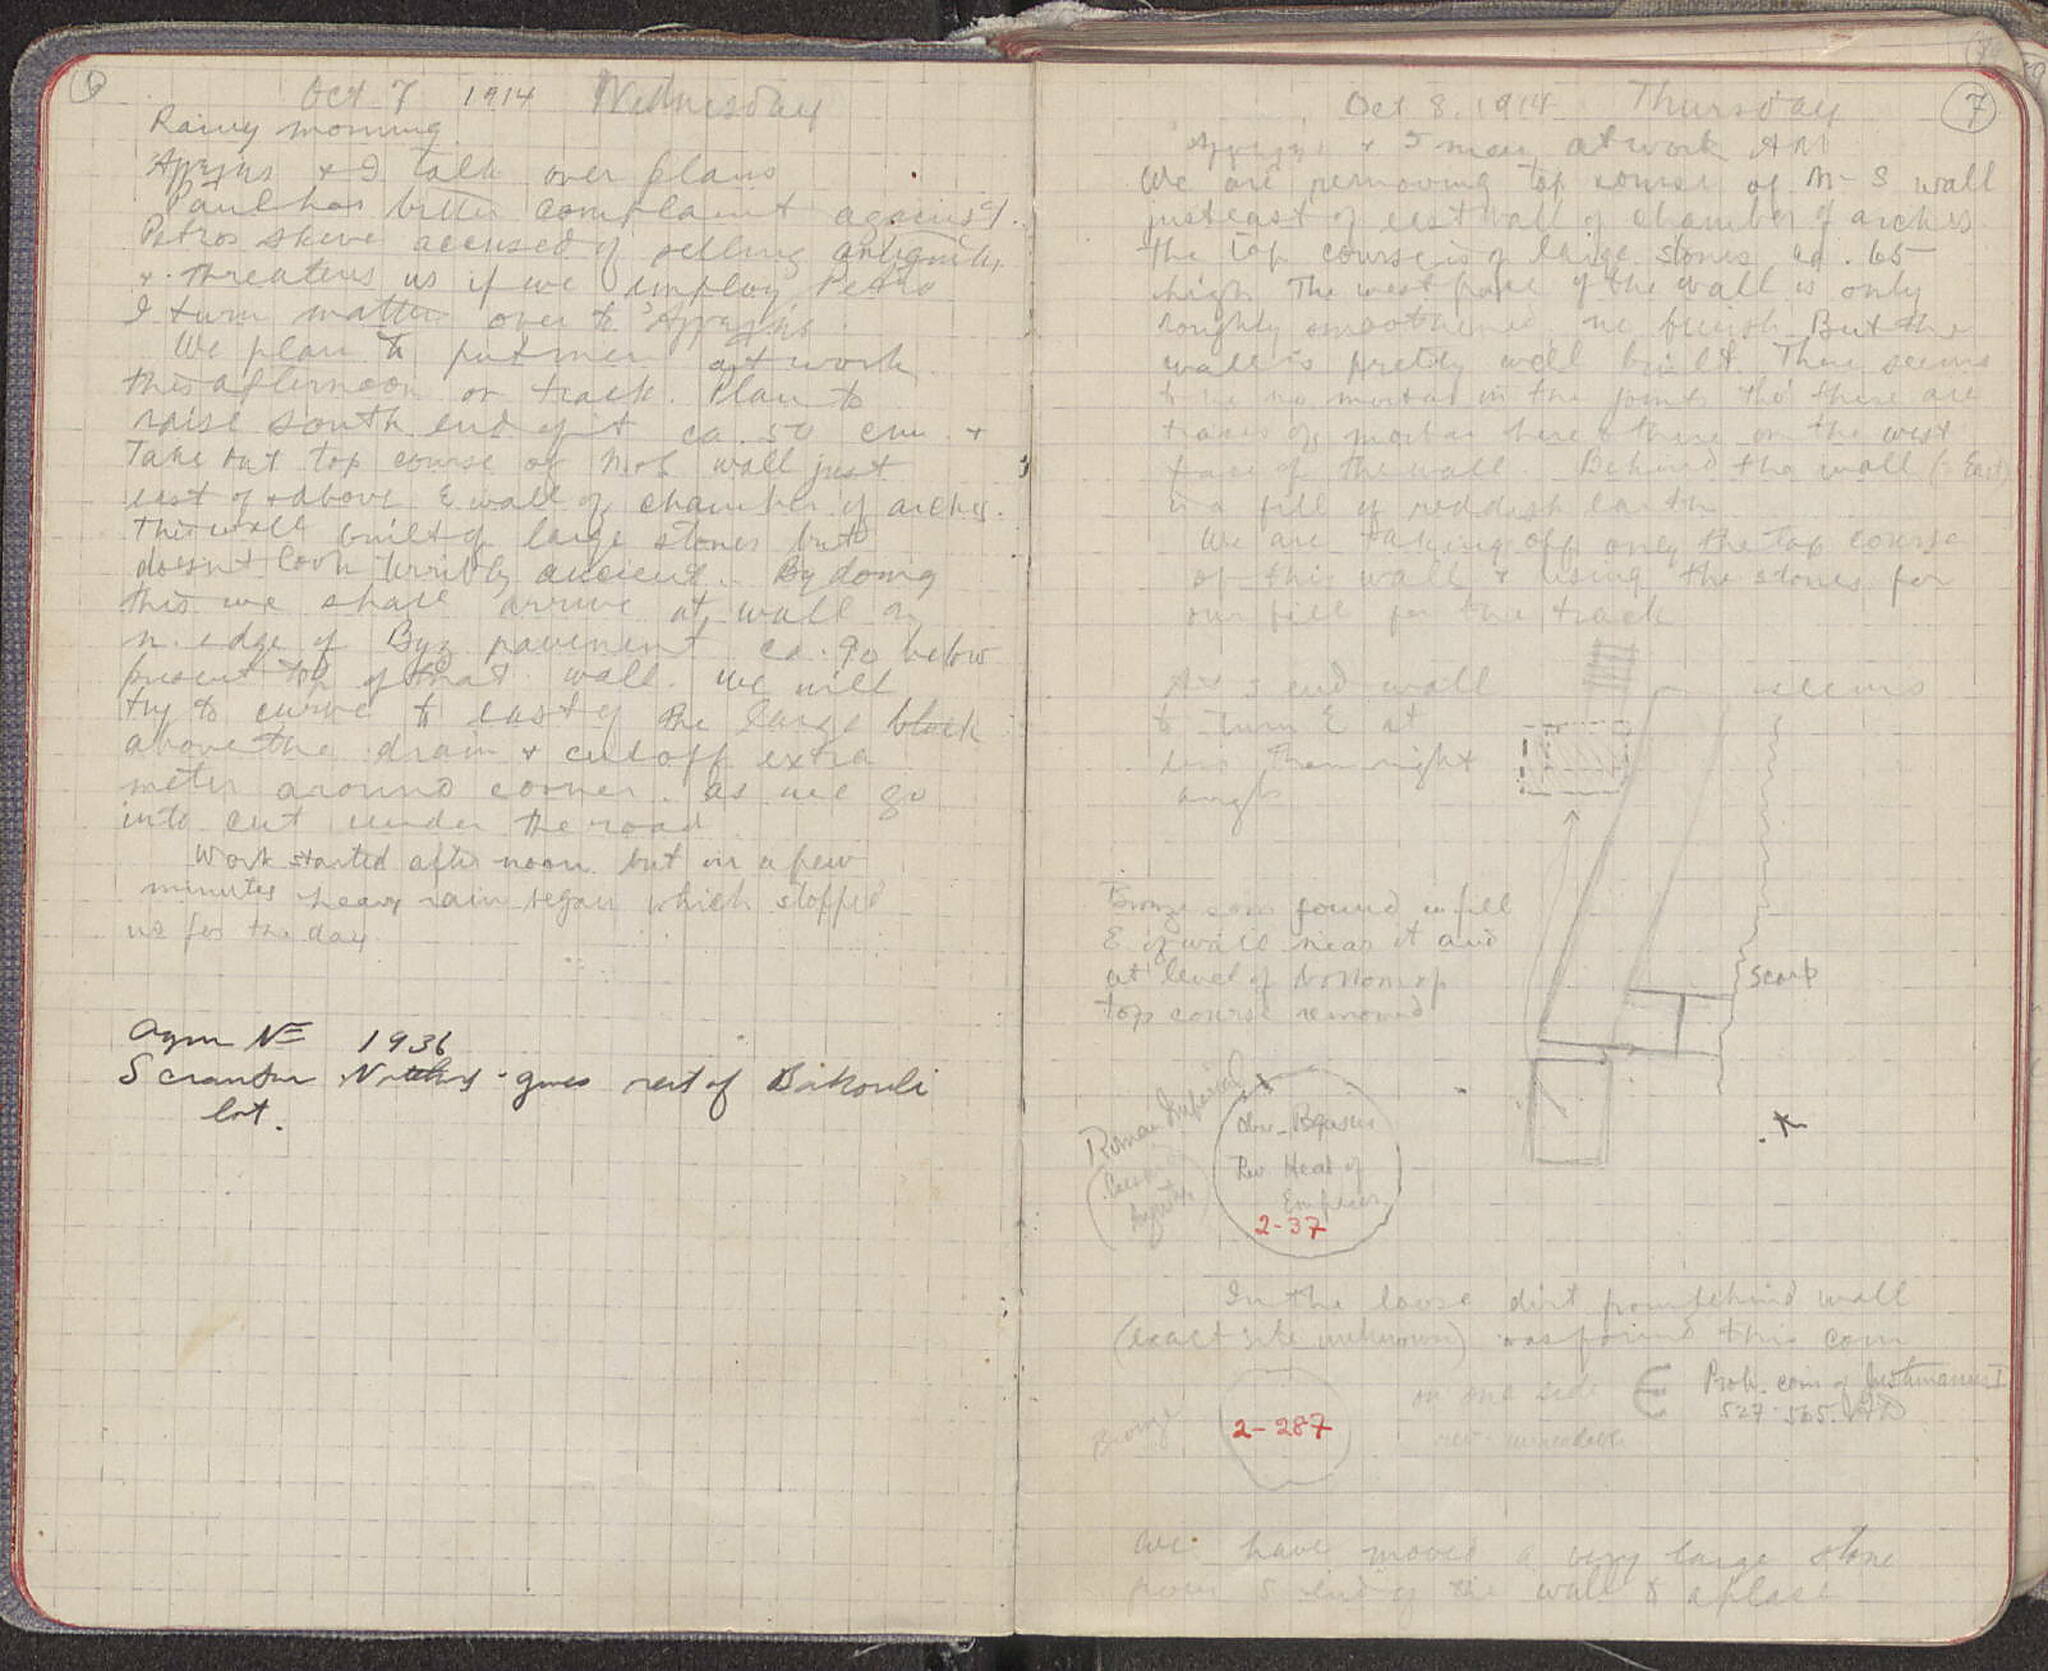 6
Oct 7 1914 Wednesday
Rainy morning
& I talk over plans
Paul has bitter complaint against
Petros accused of selling antiquities
+ threatens us if we employ Petro
I turn matter over to
We plan to put men at work
this afternoon on track. Plan to
raise south end of it ca. 50 cm. +
Take out top course of wall just
east of + above E wall of chamber of arches.
This wall built of large stones but
doesn't look terribly ancient. By doing
this we shall arrive at wall on
n. edge of Byz pavement ca. 90 below
present top of that wall. We will
try to curve to east of the large block
above the drain + cut off extra
meter around corner. as we go
into cut under the road
Work started after noon but in a few
minutes heavy rain began which stopped
us for the day
1936
gives rest of
lot.
7
Oct 8. 1914 Thursday
+ 5 men at work AM
We are removing top course of N-S wall
just east of east wall of chamber of arches
the top course is of large stones ca. .65
high The west face of the wall is only
roughly smoothened, no finish But the
wall is pretty well built. There seems
to be no mortar in the joints tho' there are
traces of mortar here & there on the west
face of the wall. Behind the wall (= East)
is a fill of reddish earth
We are taking off only the top course
of this wall + using the stones for
our fill for the track
At S end wall seems
to turn E at
less than right
angle
Bronze coin found in fill
E of wall near it and
at level of bottom of
top course removed
scarp
Roman Imperial
Obv. Pegasus
Rev Head of
Emperor
2-37
In the loose dirt from behind wall
(exact site unknown) was found this coin
Bronze
2-287
on one side E
rev. unreadable
Prob. coin of Justinianus I
527-565. AD
We have moved a very large stone
from S end of the wall to a place